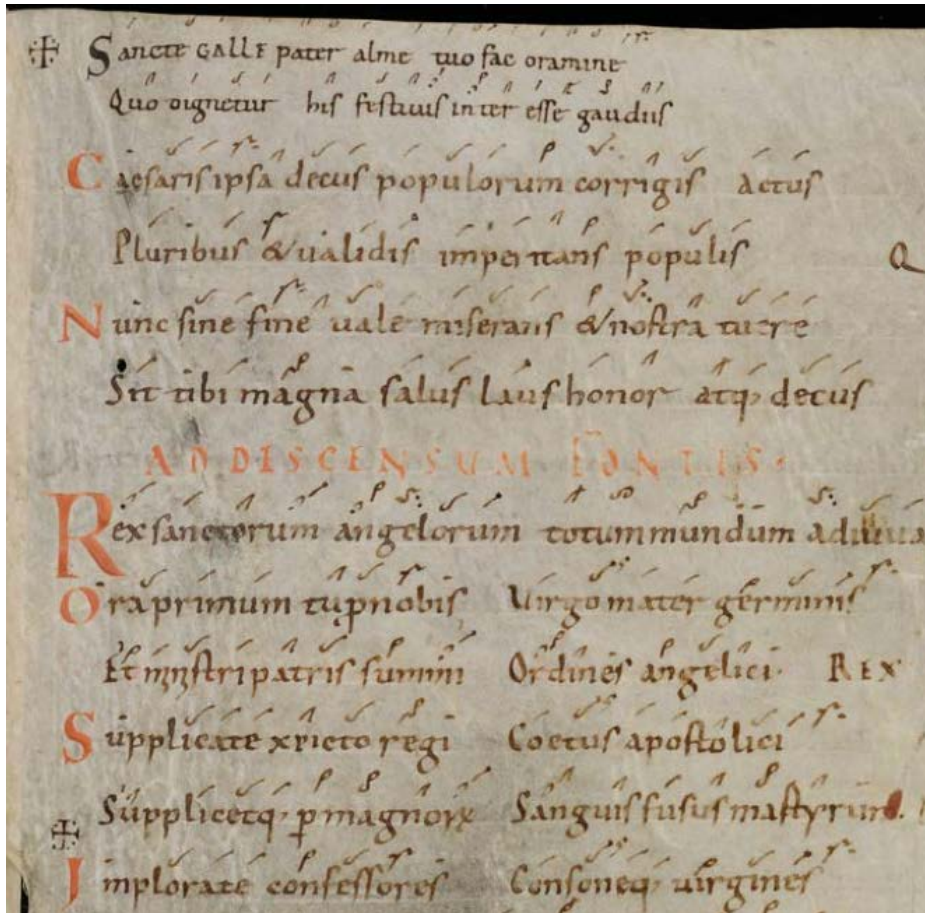 Sancte GALLE pater alme tuo fac oramine
Quo dignetur his festivis inter esse gaudiis
Caesaris ipsa decus populorum corrigis actus
Pluribus & validis imperitans populis Q
Nunc sine fine vale miserans & nostra tuere
Sit tibi magna salus laus honor atq; decus
AD DISCENSUM FONTIS.
Rex sanctorum angelorum totum mundum adiuva
Ora primum tu pnobis Virgo mater germinis
Et ministri patris summi Ordines angelici. REX
Supplicate xpicto regi Coetus apostolici
Supplicetq; pmagnorū Sanguis fusus martyrum.
Implorate confessores Consoneq; virgines